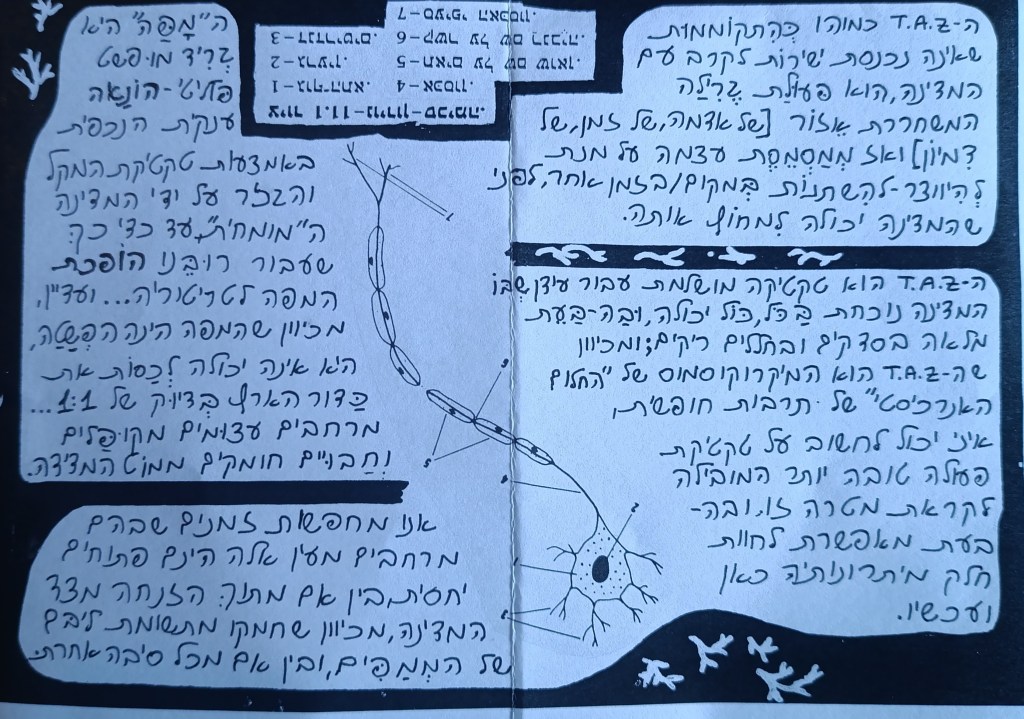 ה-T.A.Z כמוהו כְּהִתקוֹממוּת
שאינה נכנסת ישירוֹת לקרב עם
המדינה, הוא פעוּלַת גֶּרִילַה
המשחררת אֵזוֹר [של אדמה, של זמן, של
דִמיוֹן] ואז מְמַסְמֵסֶת עצמה על מנת
לְהִיווצר-להִשתנוֹת בְּמקום/בזמן אחר, לפני
שהמדינה יכולה לִמחוֹץ אותה.
ה-T.A.Z הוא טקטיקה מושלמת עבור עידן שֶבּוֹ
המדינה נוכחת בַּכֹּל, כּוֹל יכולה, וּבָה-בַּעֵת
מלאה בסדקים ובחללים ריקים; ומכיוון
שה-T.A.Z הוא המיקרוקוסמוס של "החלום
האנרכיסטי" של תרבות חופשית,
איני יכול לחשוב על טקטיקת
פעולה טובה יותר המובילה
לקראת מטרה זו. ובה-
בעת מאפשרת לחוות
חלק מיתרונותיה כאן
ועכשיו.
ציור 11.1–נוירון–סכימה.
1–גוף-התא.
2–גרעין.
3–דנדריטים.
4–אכסון.
5–תאים על שם שואן.
6–קשר על שם רנביה.
7–סעיפי האכסון.
7
6
5
4
2
1
3
ה"מַפָּה" היא
גְּרִיד מוּפשט
פוליטי-הוֹנָאה
ענקית הנכפית
באמצעות טקטיקת המקל
והגזר על ידי המדינה
ה"מומחית", עד כדי כך
שעבור רוּבֵּנו הוֹפכת
המפה לטריטוריה... ועדיין,
מכיוון שהמפה הינה הַפְשָטָה,
היא אינה יכולה לְכַסות את
כַּדור הארץ בְּדיוּק של 1:1...
מרחבים עצוּמים מקוּפָּלים
וְחַבוּיים חומקים ממוֹט המדידה.
אנו מחפשות זמנים שבהם
מרחבים מעין אלה הינם פתוחים
יחסית, בין אם מתוך הזנחה מצד
המדינה, מכיוון שחמקו מתשומת ליבם
של המְמַפִּים, ובין אם מכל סיבה אחרת.